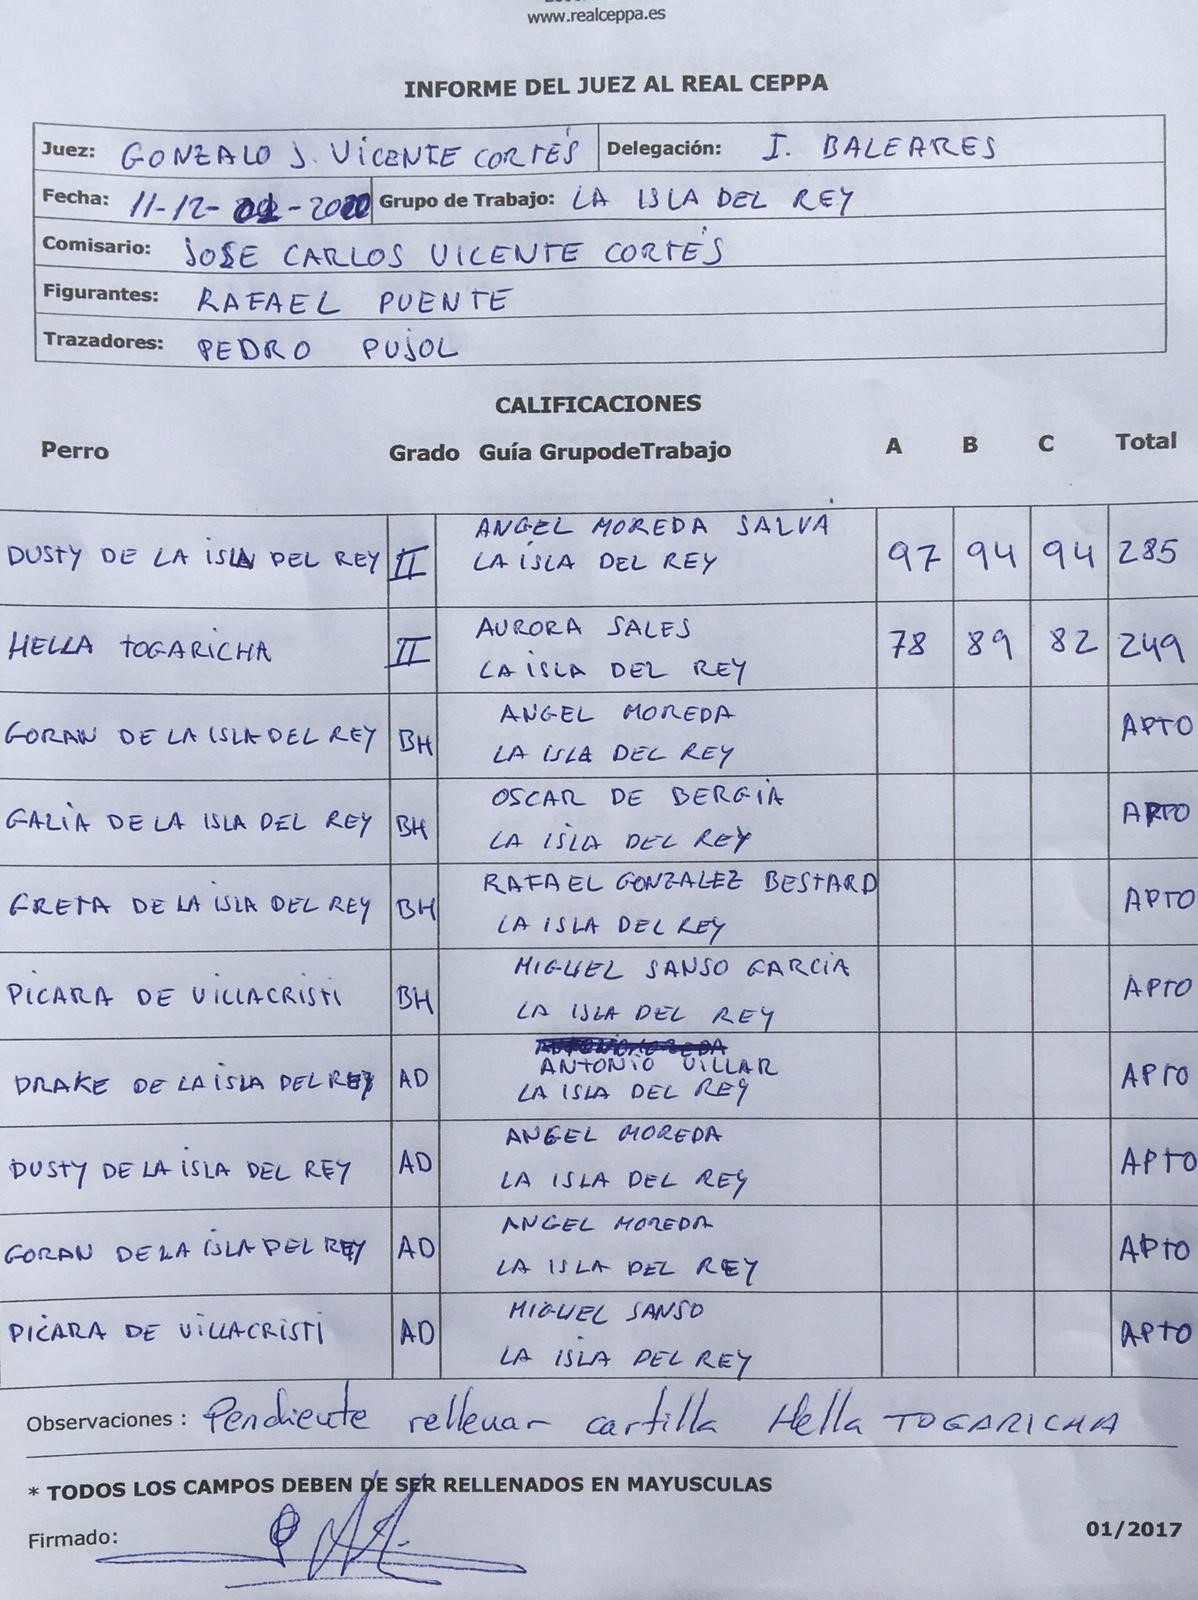 www.realceppa.es
INFORME DEL JUEZ AL REAL CEPPA
Juez: GONZALO J. VICENTE CORTÉS Delegación: I. BALEARES
Fecha: 11-12- Grupo de Trabajo: LA ISLA DEL REY
Comisario: JOSE CARLOS VICENTE CORTÉS
Figurantes: RAFAEL PUENTE
Trazadores: PEDRO PUJOL
CALIFICACIONES
Perro Grado Guía GrupodeTrabajo A B C Total
ANGEL MOREDA SALVÁ
DUSTY DE LA ISLA DEL REY II LA ISLA DEL REY 97 94 94 285
AURORA SALES
HELLA TOGARICHA II LA ISLA DEL REY 78 89 82 249
ANGEL MOREDA
GORAN DE LA ISLA DEL REY BH LA ISLA DEL REY APTO
OSCAR DE BERGIA
GALIA DE LA ISLA DEL REY BH LA ISLA DEL REY APTO
RAFAEL GONZALEZ BESTARD
GRETA DE LA ISLA DEL REY BH LA ISLA DEL REY APTO
MIGUEL SANSO GARCIA
PICARA DE VILLACRISTI BH LA ISLA DEL REY APTO
ANTONIO VILLAR
DRAKE DE LA ISLA DEL REY AD LA ISLA DEL REY APTO
ANGEL MOREDA
DUSTY DE LA ISLA DEL REY AD LA ISLA DEL REY APTO
ANGEL MOREDA
GORAN DE LA ISLA DEL REY AD LA ISLA DEL REY APTO
MIGUEL SANSO
PICARA DE VILLACRISTI AD LA ISLA DEL REY APTO
Observaciones : Pendiente rellenar cartilla Hella TOGARICHA
* TODOS LOS CAMPOS DEBEN DE SER RELLENADOS EN MAYUSCULAS
Firmado:
01/2017